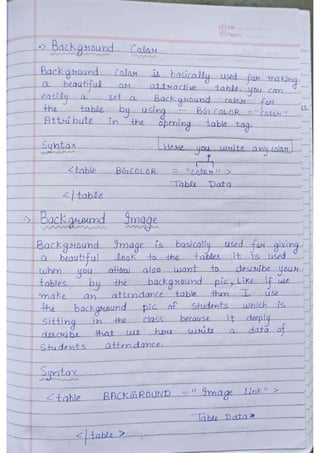 -> Background Color
Background Color is basically used for making
a beautiful or attractive table. you can
easily a set a Background color for
the table by using - BGCOLOR = "color"
Attribute in the opening table tag.
Syntax Here you write any color
<table BGCOLOR = "color">
Table Data
</table
-> Background Image
Background Image is basically used for giving
a beautiful look to the tables it is used
when you also want to describe your
tables by the background pic, Like if we
make an attendance table then I use
the background pic of students which is
sitting in the class because it deeply
describe that we here write a data of
students attendance.
Syntax
<table BACKGROUND = "Image Link">
Table Data
</table>